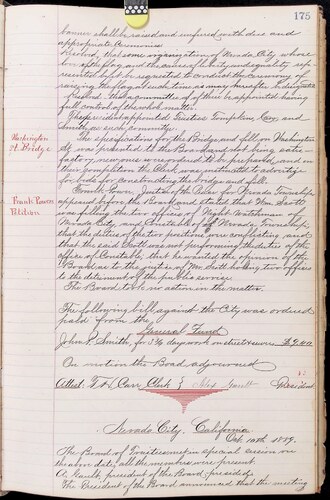 175
banner shall be raised and unfurled with due and
appropriate Ceremonies
Resolved, that some organization of Nevada City whose
love of the flag and the cause of Liberty and equality rep-
resented by it be requested to conduct the Ceremony of
raising the flag at such time as may hereafter be designated
Resolved that a Committee of three be appointed having
full control of the whole matter.
The president appointed Trustees Tompkins, Carr, and
Smith, as such committee.
Washington
St. Bridge
The specifications of the Bridge and fill on Washington
St was presented to the Board and not being satis-
factory, new ones were ordered to be prepared, and on
their completion the Clerk was instructed to advertise
for bids for constructing the bridge and fill.
Frank Power
Petition
Frank Power, Justice of the Peace for Nevada Township
appeared before the Board and stated that Wm Scott
was filling the two offices of Night Watchman of
Nevada City and Constable of Nevada Township
that the duties of the two positions were conflicting and
that the said Scott was not performing the duties of the
office of Constable, that he wanted the opinion of the
Board as to the justice of Mr Scott holding two offices
to the detriment of the public service.
The Board took no action in the matter.
The following bill against the City was ordered
paid from the
General Fund
John R. Smith, for 3¾ days work on streets &
On motion the Board adjourned
Attest. T. H. Carr Clerk } President
Nevada City, California
Oct. 10th 1899.
The Board of Trustees met in special session on
the above date, all the members were present.
A. Gault president of the Board presided.
The President of the Board announced that the meeting